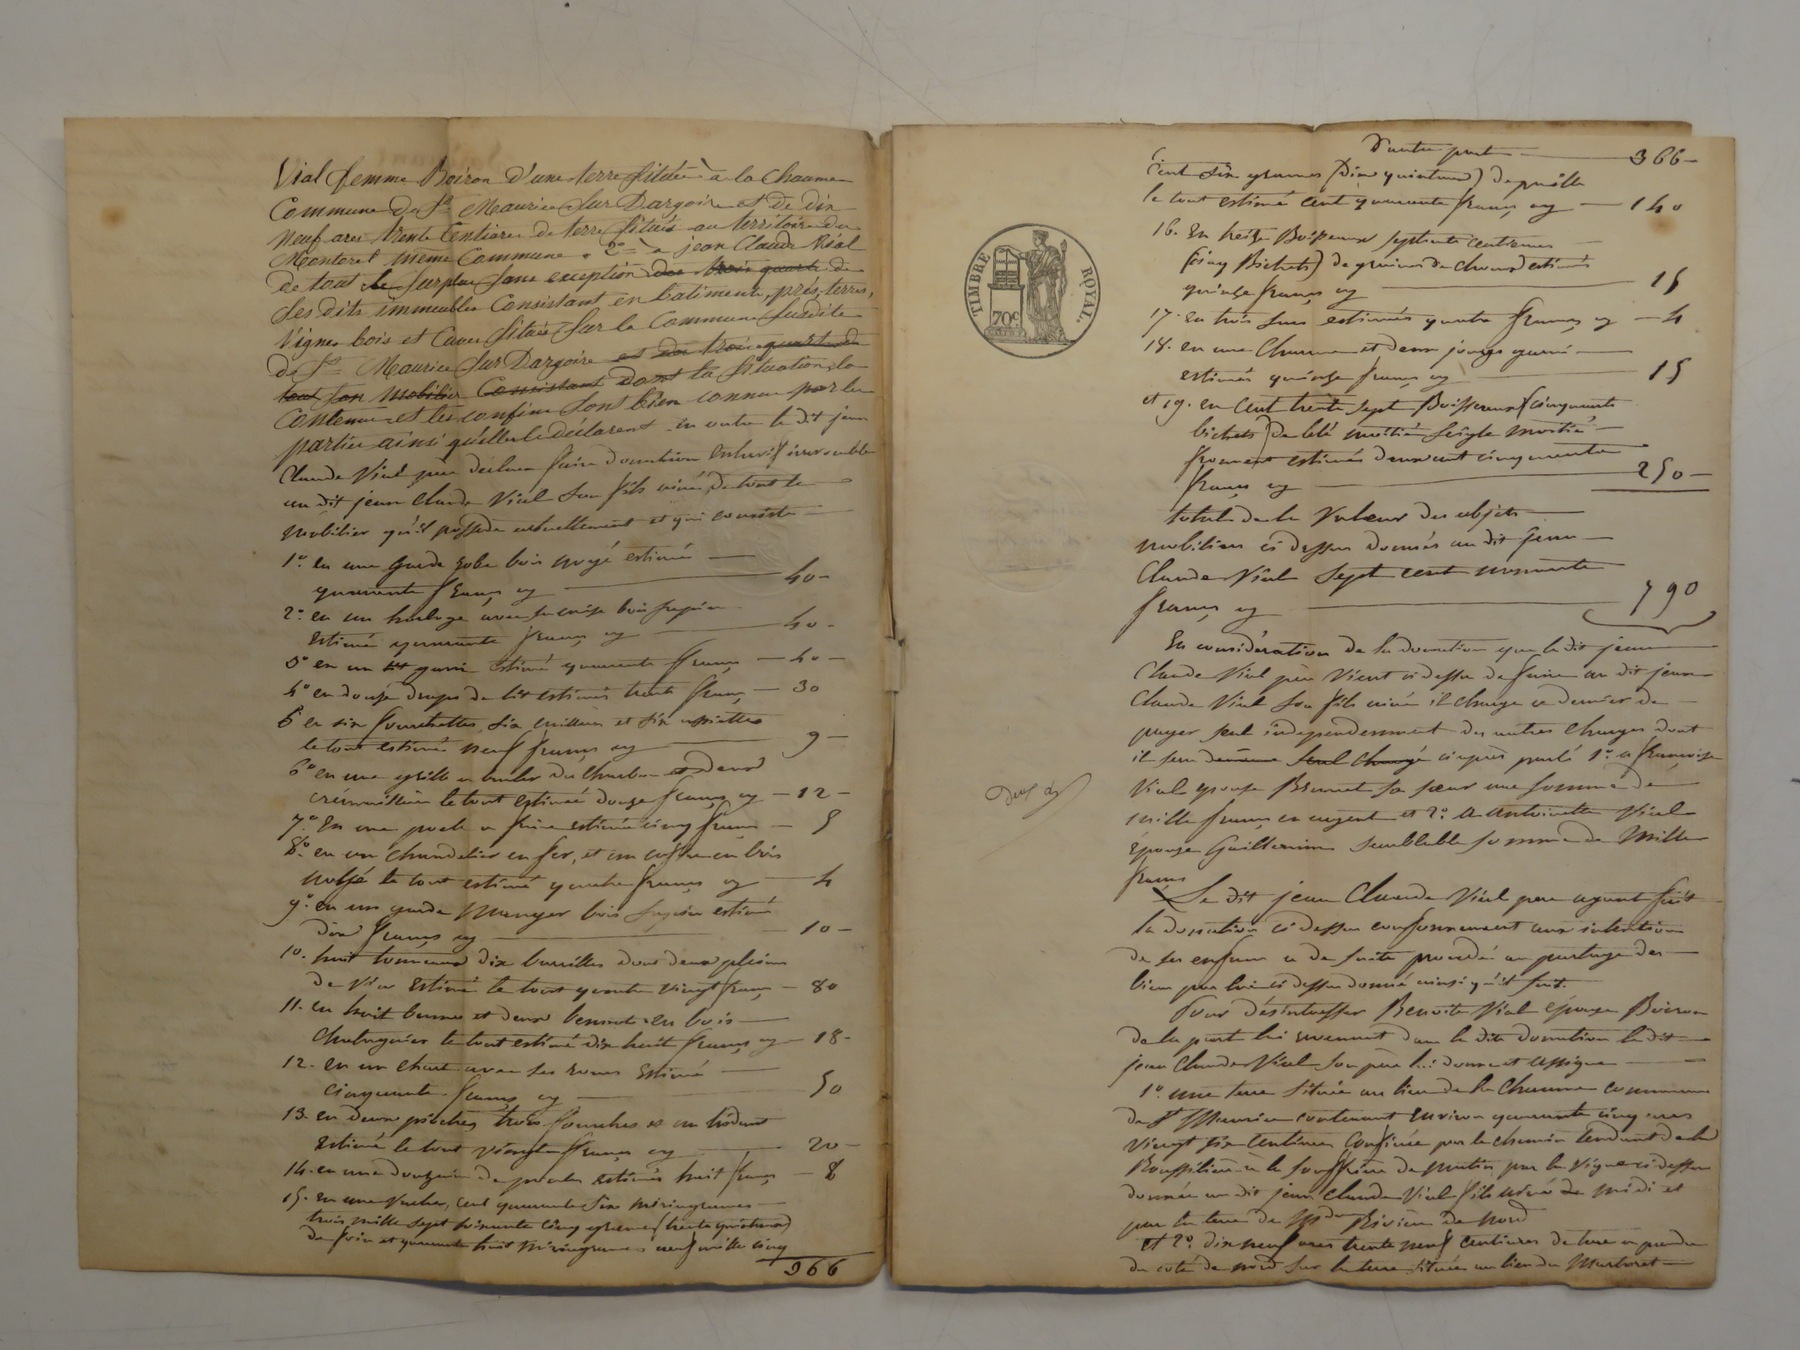 Vial femme Boiron d'une terre située à la Chaume
Commune de St Maurice sur Dargoire et de dix
neuf ares trente Centiares de terre situés au territoire du
Montoret même Commune . 2º à jean Claude Vial
de tout le surplus sans exception des trois quarts de
ses dits immeubles Consistant en batiments, prés, terres,
Vignes bois et Caves situés sur la Commune susdite
de St Maurice sur Dargoire et des trois quarts de
tout son mobilier Consistant dont la situation, la
Contenue et les confins sont bien connus par les
parties ainsi qu'elles le déclarent. en outre le dit jean
Claude Vial père déclare faire donation entrevifs irrévocable
au dit jean Claude Vial son fils ainé, de tout le
mobilier qu'il possède actuellement et qui consiste
1º. en une garde robe bois noyé estimé
quarante francs cy 40-
2º. en un horloge avec sa caisse bois sapin
estimé quarante francs cy 40-
3º en un lit garni estimé quarante francs 40-
4º en douze draps de lit estimés trente francs 30
5º en six fourchettes, six cuillers et six assiettes
le tout estimé neuf francs cy 9-
6º en une grille a bruler du charbon et deux
crémaillères le tout estimé douze francs cy 12-
7º. En une poele a frire estimée cinq francs 5
8º. en un chandelier en fer, et un coffre en bois
le tout estimé quatre francs cy 4
9º. en un garde manger bois sapin estimé
dix francs cy 10-
10. huit tonneaux dix barrilles dont deux pleines
de vin estimé le tout quatre vingt francs 80
11. en huit bennes et deux en bois
chataignier le tout estimé dix huit francs cy 18-
12. en un chart avec ses roues estimé
cinquante francs cy 50
13. en deux pioches trois fourches et un bident
estimé le tout vingt francs cy 20-
14. en une douzaine de estimés huit francs 8
15. en une vache, cent quarante six miriagrames
trois mille sept soixante cinq grames (trente quintaux)
de foin et quarante huit miriagrames neuf mille cinq
366
D'autre part 366-
Cent six grames (dix quintaux) de paille
le tout estimé cent quarante francs cy 140
16. en treize Boisseaux septante centiemes
(cinq Bichets) de graines de estimés
quinze francs cy 15
17. en trois sacs estimés quatre francs cy 4
18. en une Charrue et deux jougs garnis
estimés quinze francs cy 15
et 19. en Cent trente sept Boisseaux (cinquante
bichets) de blé moitié seigle moitié
froment estimés deux cent cinquante
francs cy 250-
total de la Valeur des objets
mobiliers ci dessus donnés au dit jean
Claude Vial sept cent nonante
francs cy 790
TIMBRE ROYAL.
70c
En considération de la donation que le dit jean
Claude Vial père Vient ci dessus de faire au dit jean
Claude Vial son fils ainé il charge ce dernier de
payer seul indépendemment des autres charges dont
il sera seul chargé ci après parlé 1º. a françoise
Vial épouse Brunet sa sœur une somme de
mille francs en argent et 2º. a antoinette Vial
épouse Guillermin semblable somme de Mille
francs
Le dit jean Claude Vial pere ayant fait
la donation ci dessus conformement aux intentions
de ses enfans a de suite procédé au partage des
biens par lui ci dessus donnés ainsi qu'il suit.
Pour désintéresser Benoite Vial épouse Boiron
de la part lui revenant dans la dite donation le dit
jean Claude Vial son père lui donne et assigne
1º. une terre située au lieu de la Chaume commune
de St Maurice contenant environ quarante cinq ares
vingt six Centiares Confinée par le chemin tendant de la
Roussilière à la de matin par la vigne ci dessus
donnée au dit jean Claude Vial fils ainé de midi et
par la terre de Rivière de nord
et 2º. dix neuf ares trente neuf centiares de terre a prendre
du coté de nord sur la terre située au lieu du Montoret